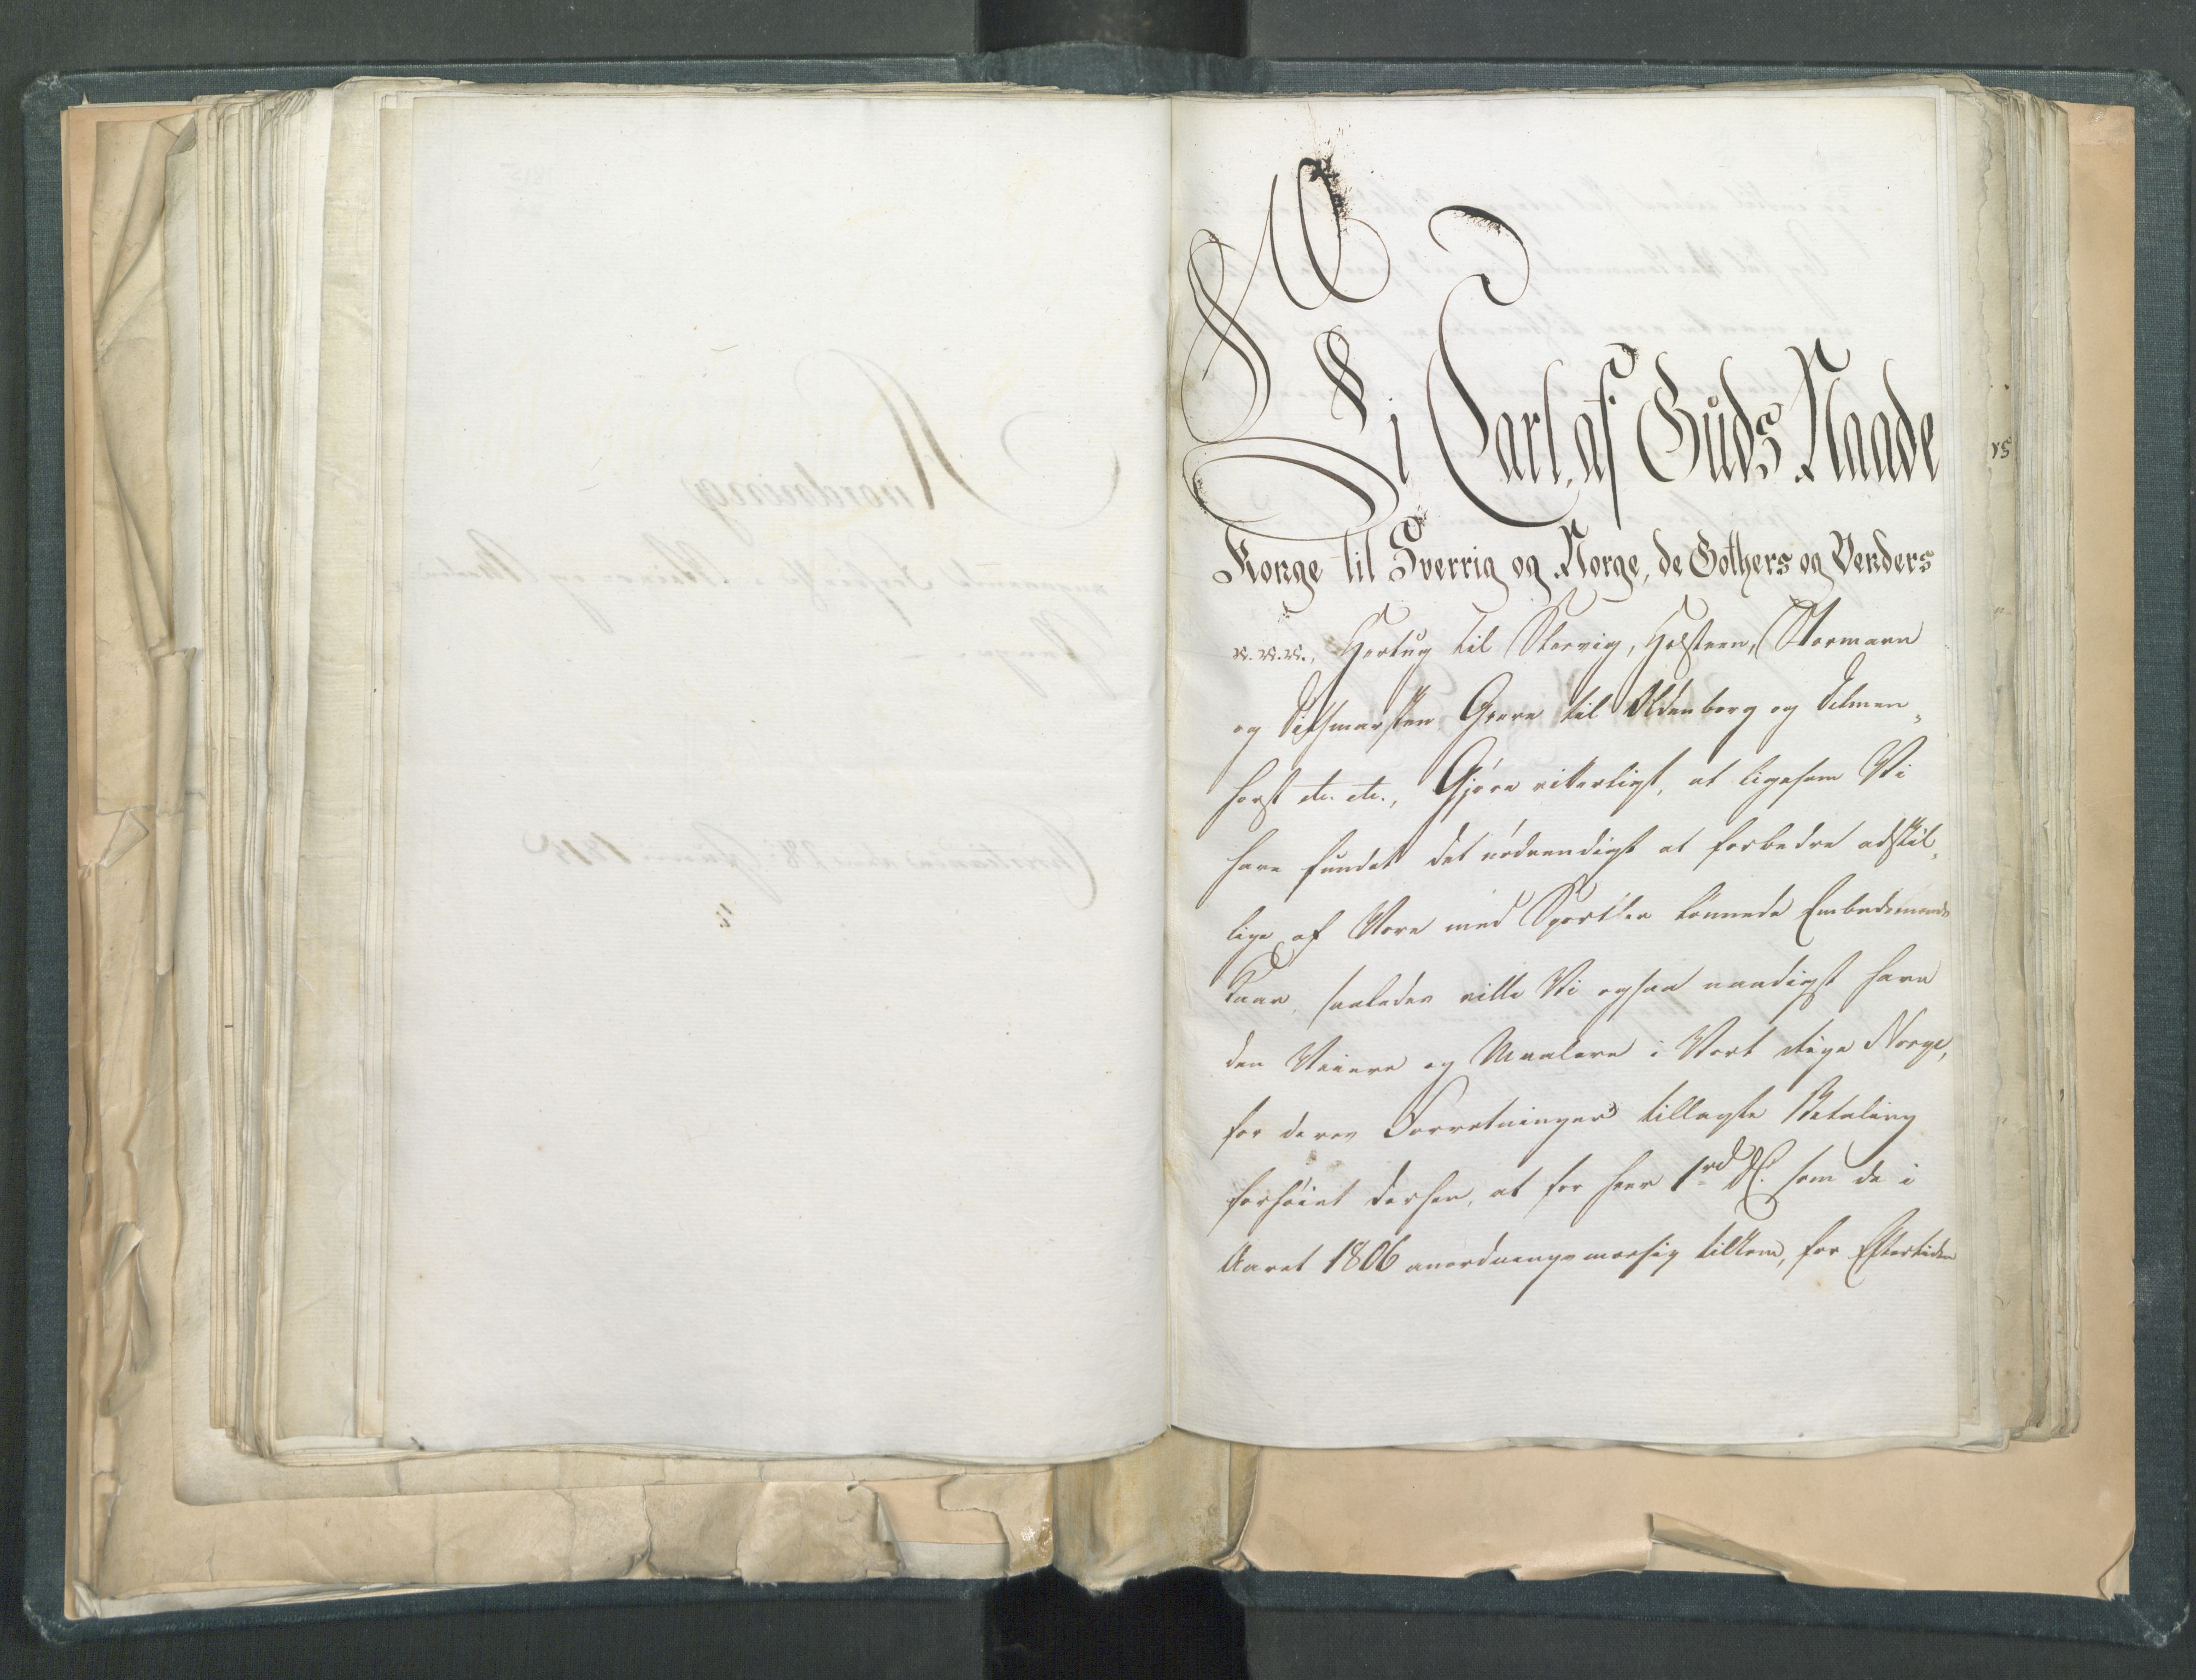 Vi Carl, af Guds Naade
Konge til Sverrig og Norge, de Gothers og Venders
&c. &c. &c., Hertug til Slesvig, Holsteen, Stormarn
og Ditsmarsken Greve til Oldenborg og Delmen„
horst etc. etc., Gjøre vitterligt, at ligesom Vi
have fundet det nødvendigt at forbedre adskil„
lige af Vore med Sportler lønnede Embedsmænds
Kaar, saaledes ville Vi ogsaa naadigst have
den Veiere og Maalere i Vort Rige Norge,
for deres Forretninger tillagte Betaling
forhøiet derhen, at for hver 1 rd som de i
Aaret 1806 anordningsmæssig tilkom, for Eftertiden